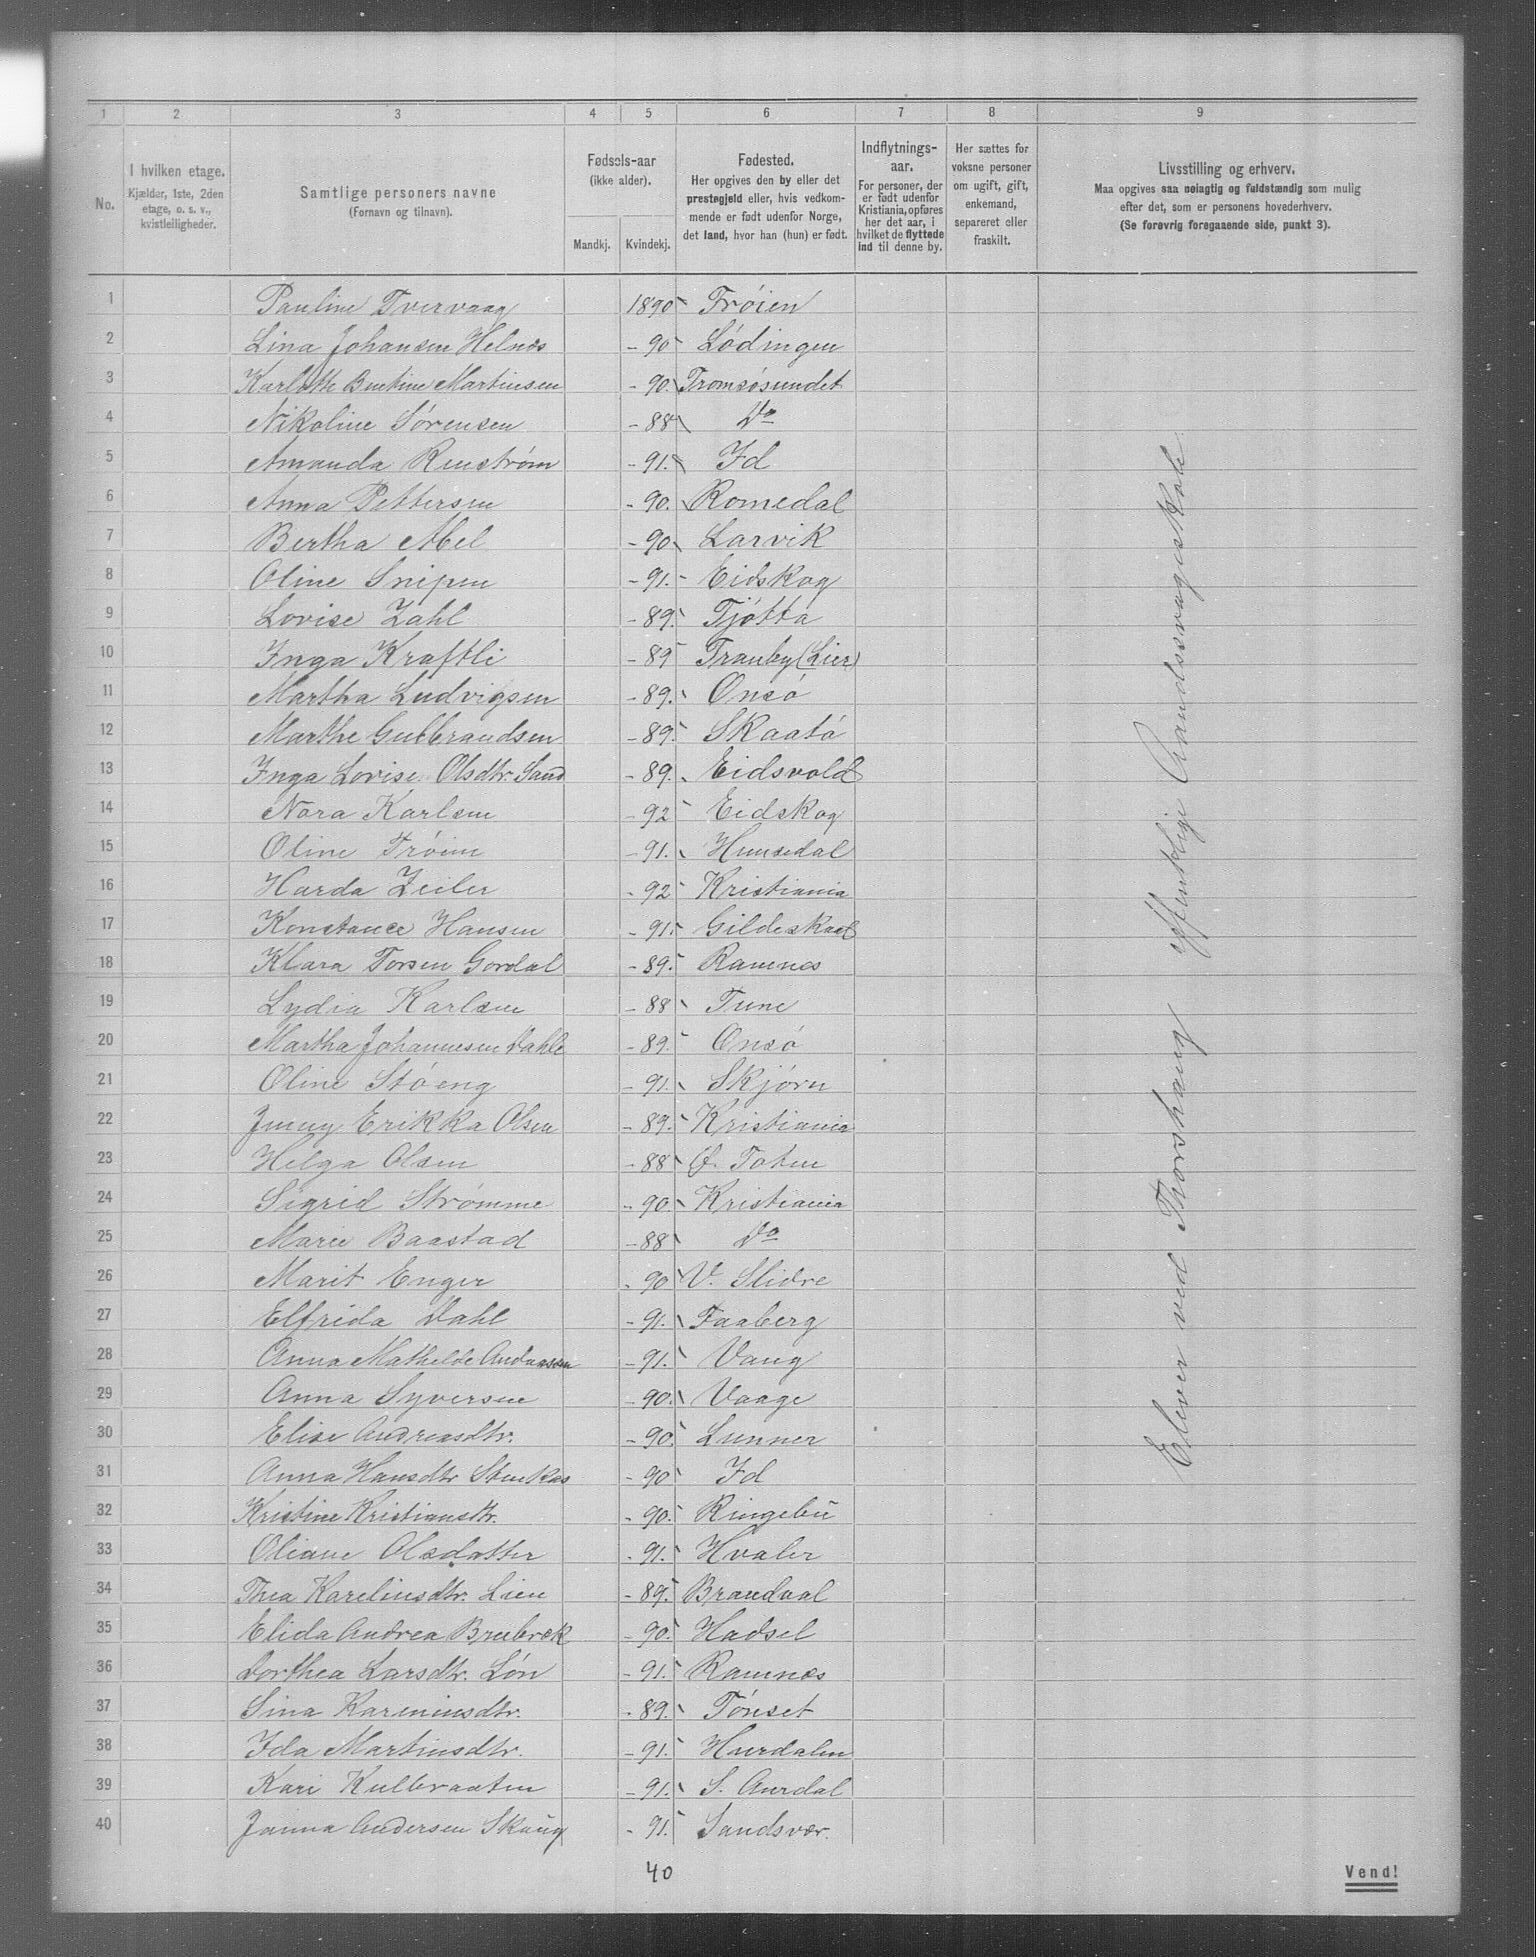 1 2 3 4 5 6 7 8 9
No.
I hvilken etage.
Kjælder, 1ste, 2den
etage, o. s. v.,
kvistleiligheder.
Samtlige personers navne
(Fornavn og tilnavn).
Fødsels-aar
(ikke alder).
Mandkj. Kvindekj.
Fødested.
Her opgives den by eller det
prestegjeld eller, hvis vedkom-
mende er født udenfor Norge,
det land, hvor han (hun) er født.
Indflytnings-
aar.
For personer, der
er født udenfor
Kristiania, opføres
her det aar, i
hvilket de flyttede
ind til denne by.
Her sættes for
voksne personer
om ugift, gift,
enkemand,
separeret eller
fraskilt.
Livsstilling og erhverv.
Maa opgives saa nøiagtig og fuldstændig som mulig
efter det, som er personens hovederhverv.
(Se forøvrig foregaaende side, punkt 3).
1 Pauline Tvervaag 1890 Trøien
2 Lina Johansen Helnæs - 90 Lødingen
3 Karlotte Bertine Martinsen - 90. Tromsøsundet
4 Nikoline Sørensen - 88 Do
5 Amanda Renstrøm - 91. Id
6 Anna Pettersen - 90. Romedal
7 Bertha Abel - 90 Larvik
8 Oline Snipen - 91. Eidskog
9 Lovise Zahl - 89. Tjøtta
10 Inga Kraftli - 89 Tranby (Lier)
11 Martha Ludvigsen - 89. Onsø
12 Marthe Gulbrandsen - 89. Skaatø
13 Inga Lovise Olsdtr. Sand - 89. Eidsvold
14 Nora Karlsen - 92 Eidskog
15 Oline Trøim - 91. Hemsedal
16 Harda Zeiler - 92 Kristiania
17 Konstance Hansen - 91. Gildeskaal
18 Klara Torsen Gordal - 89. Ramnes
19 Lydia Karlsen - 88 Tune
20 Martha Johannesen Dahle - 89. Onsø
21 Oline Støeng - 91. Skjørn
22 Jenny Erikka Olsen - 89. Kristiania
23 Helga Olsen - 88 Ø. Toten
24 Sigrid Strømme - 90. Kristiania
25 Marie Baastad - 88 Do
26 Marit Enger - 90 V. Slidre
27 Elfrida Dahl - 91. Faaberg
28 Anna Mathilde Andreassen - 91. Vang
29 Anna Syversen - 90. Vaage
30 Elise Andreasdtr. - 90. Lunner
31 Anna Hansdtr - 90 Id
32 Kristine Kristiansdtr. - 90. Ringebu
33 Oliane Olsdatter - 91. Hvaler
34 Thea Karelinsdtr. Lien - 89. Brandval
35 Elida Andrea Brubræk - 90. Hadsel
36 Dorthea Larsdtr. Løn - 91. Ramnæs
37 Sina Kareniusdtr. - 89. Tønset
38 Ida Martinsdtr. - 91. Hurdalen
39 Kari Kulbraaten - 91. S. Aurdal
40 Janna Andersen Skaug - 91. Sandsvær.
Elever ved Thorshaug offentlige Aandssvageskole
40
Vend!